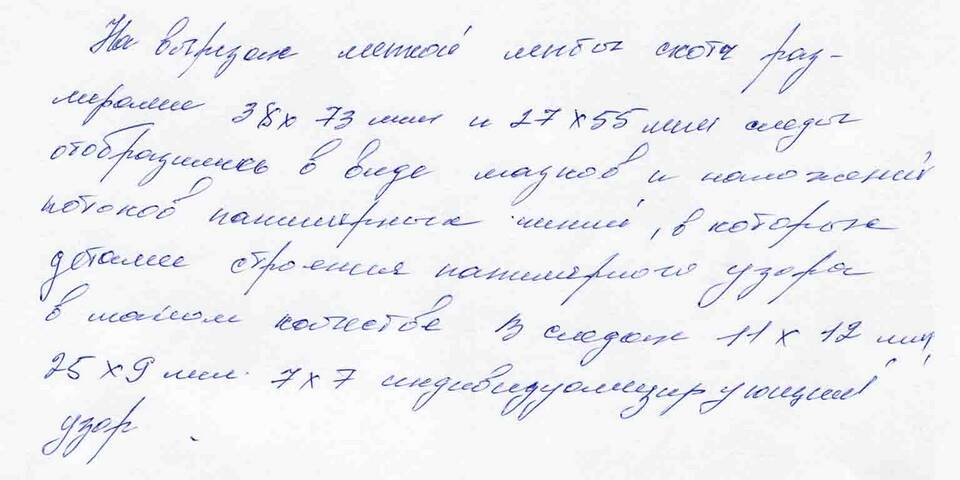 На вырезах липкой ленты скотч раз-
мерами 38х 73 мм и 27 х 55 мм следы
отобразились в виде мазков и наложений
потоков папиллярных линий, в которых
детали строения папиллярного узора
в малом качестве В следах 11 х 12 мм,
25 х 9 мм. 7 х 7 индивидуализирующий
узор